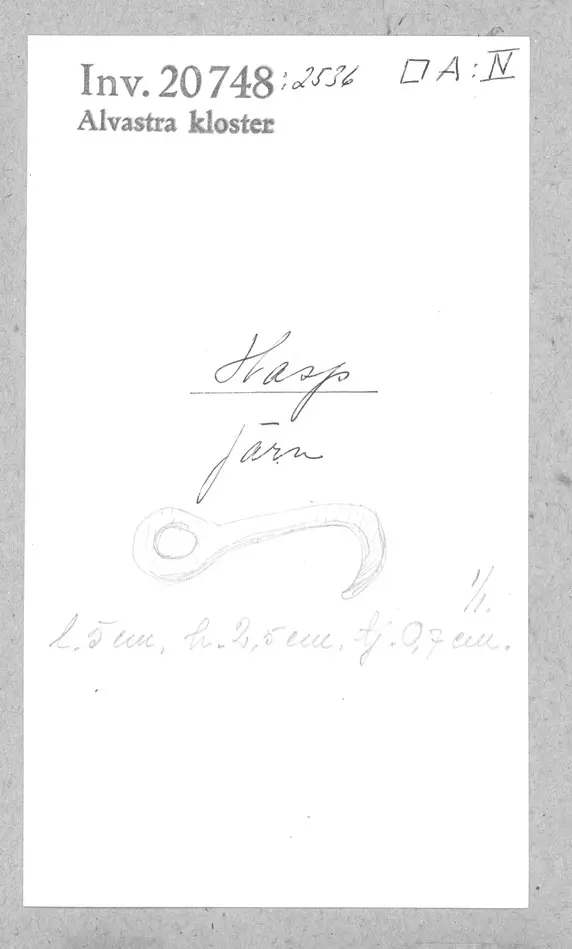 Inv. 20748:2536 □ A:IV
Alvastra kloster
Hasp
järn
1/1.
l. 5 cm, h. 2,5 cm, tj. 0,7 cm.